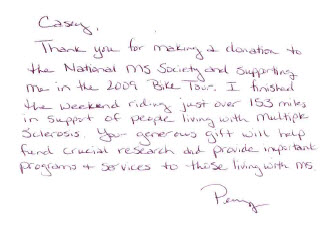 Casey,
Thank you for making a donation to
the National MS Society and supporting
me in the 2009 Bike Tour. I finished
the weekend riding just over 153 miles
in support of people living with Multiple
Sclerosis. Your generous gift will help
fund crucial research and provide important
programs + services to those living with MS.
Penny